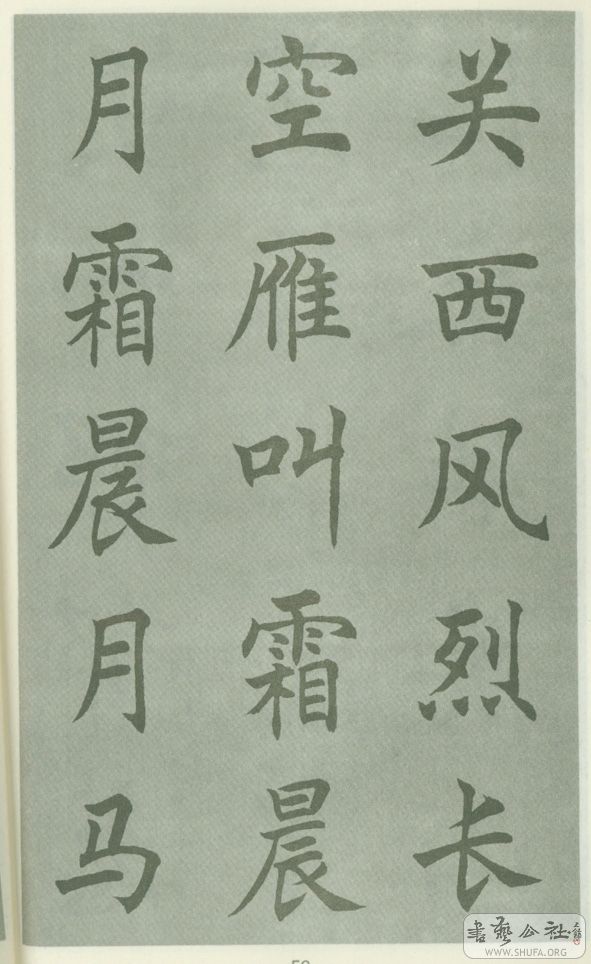 关西风烈长
空雁叫霜晨
月霜晨月马
書藝公社
WWW.SHUFA.ORG